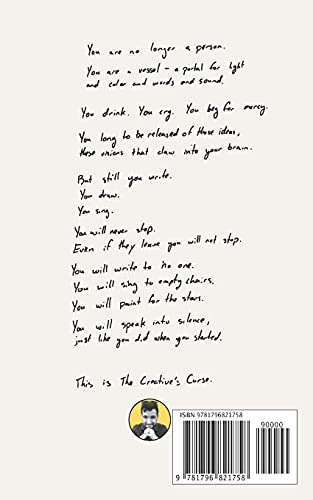 You are no longer a person.
You are a vessel – a portal for light
and color and words and sound.
You drink. You cry. You beg for mercy.
You long to be released of those ideas,
these visions that claw into your brain.
But still you write.
You draw.
You sing.
You will never stop.
Even if they leave you will not stop.
You will write to no one.
You will sing to empty chairs.
You will paint for the stars.
You will speak into silence,
just like you did when you started.
This is The Creative's Curse.
ISBN 9781796821758
90000
9 781796 821758